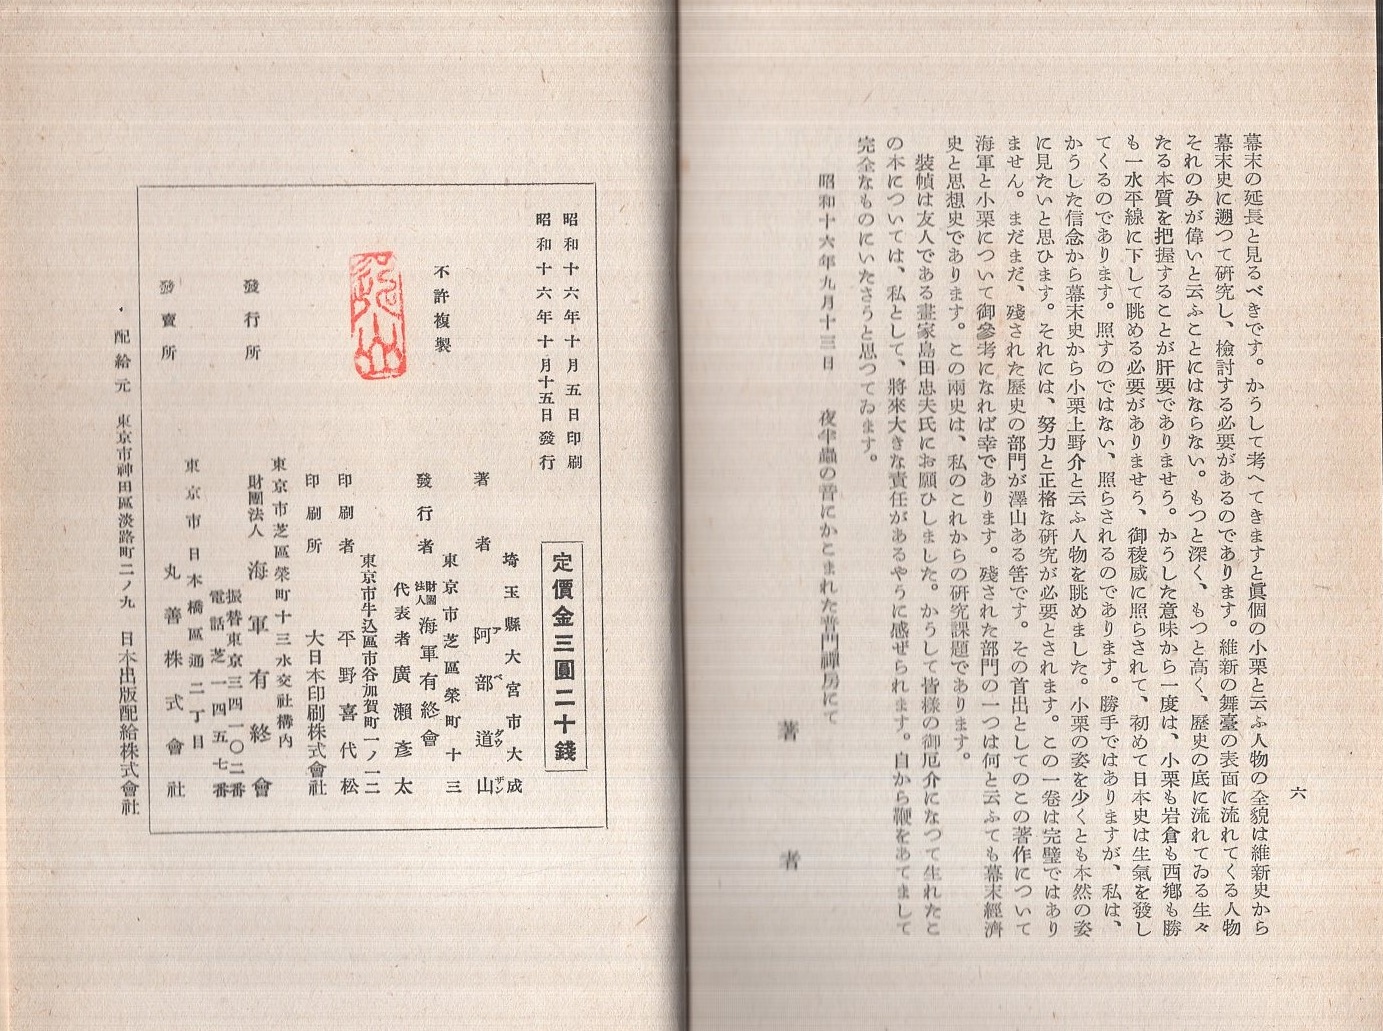 六
幕末の延長と見るべきです。かうして考へてきますと眞個の小栗と云ふ人物の全貌は維新史から
幕末史に遡つて研究し、檢討する必要があるのであります。維新の舞臺の表面に流れてくる人物
それのみが偉いと云ふことにはならない。もつと深く、もつと高く、歷史の底に流れてゐる生々
たる本質を把握することが肝要でありませう。かうした意味から一度は、小栗も岩倉も西鄕も勝
も一水平線に下して眺める必要がありませう、御稜威に照らされて、初めて日本史は生氣を發し
てくるのであります。照すのではない、照らされるのであります。勝手ではありますが、私は、
かうした信念から幕末史から小栗上野介と云ふ人物を眺めました。小栗の姿を少くとも本然の姿
に見たいと思ひます。それには、努力と正格な硏究が必要とされます。この一卷は完璧ではあり
ません。まだまだ、殘された歷史の部門が澤山ある筈です。その首出としてのこの著作について
海軍と小栗について御參考になれば幸であります。殘された部門の一つは何と云ふても幕末經濟
史と思想史であります。この兩史は、私のこれからの硏究課題であります。
裝幀は友人である畫家島田忠夫氏にお願ひしました。かうして皆樣の御厄介になつて生れたこ
の本については、私として、將來大きな責任があるやうに感ぜられます。自から鞭をあてまして
完全なものにいたさうと思つてゐます。
昭和十六年九月十三日　夜半蟲の音にかこまれた普門禪房にて
著者
昭和十六年十月五日印刷
昭和十六年十月十五日發行
不許複製
定價金三圓二十錢
埼玉縣大宮市大成
著者　阿部道山
アベダウザン
東京市芝區榮町十三
發行者　財團法人海軍有終會
代表者　廣瀨彥太
東京市牛込區市谷加賀町一ノ一二
印刷者　平野喜代松
印刷所　大日本印刷株式會社
東京市芝區榮町十三水交社構內
發行所　財團法人　海軍有終會
振替東京三四一〇二番
電話芝一四五七番
東京市日本橋區通二丁目
發賣所　丸善株式會社
配給元　東京市神田區淡路町二ノ九　日本出版配給株式會社